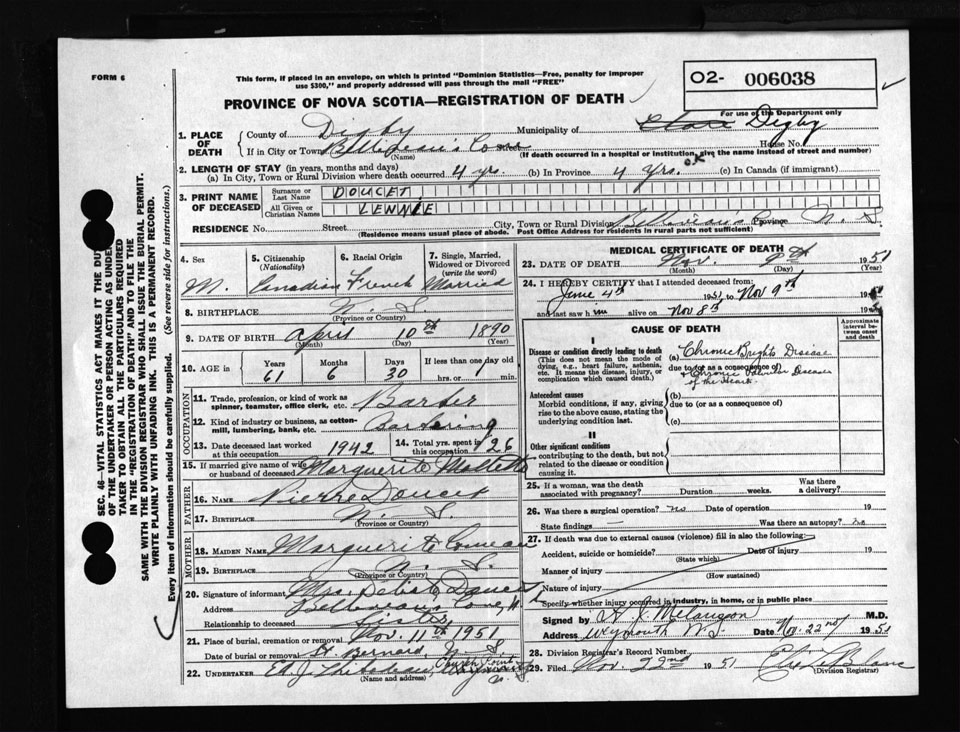 FORM 6
This form, if placed in an envelope, on which is printed "Dominion Statistics—Free, penalty for improper
use $300," and properly addressed will pass through the mail "FREE"
O2- 006038
PROVINCE OF NOVA SCOTIA—REGISTRATION OF DEATH
For use of the Department only
1. PLACE OF DEATH County of Digby Municipality of Clare Digby
If in City or Town Belliveau's Cove House No.
(Name) (If death occurred in a hospital or institution, give the name instead of street and number)
2. LENGTH OF STAY (in years, months and days)
(a) In City, Town or Rural Division where death occurred 4 yrs. (b) In Province 4 yrs. (c) In Canada (if immigrant)
3. PRINT NAME OF DECEASED Surname or Last Name DOUCET
All Given or Christian Names LENNIE
RESIDENCE No. Street City, Town or Rural Division Belliveau's Cove Province N. S.
(Residence means usual place of abode. Post Office Address for residents in rural parts not sufficient)
4. Sex 5. Citizenship (Nationality) 6. Racial Origin 7. Single, Married, Widowed or Divorced (write the word)
M. Canadian French Married
8. BIRTHPLACE N. S.
(Province or Country)
9. DATE OF BIRTH April 10th 1890
(Month) (Day) (Year)
10. AGE in Years Months Days If less than one day old
61 6 30 hrs. or min.
OCCUPATION
11. Trade, profession, or kind of work as
spinner, teamster, office clerk, etc. Barber
12. Kind of industry or business, as cotton-
mill, lumbering, bank, etc. Barbering
13. Date deceased last worked at this occupation 1942 14. Total yrs. spent in this occupation 26
15. If married give name of wife
or husband of deceased Marguerite
FATHER
16. NAME Pierre Doucet
17. BIRTHPLACE N. S.
(Province or Country)
MOTHER
18. MAIDEN NAME Marguerite Comeau
19. BIRTHPLACE N. S.
(Province or Country)
20. Signature of informant Mrs. Doucet
Address Belliveau's Cove, N.
Relationship to deceased Sister
21. Place of burial, cremation or removal Nov. 11th 1951
Date of burial or removal St. Bernard, N. S.
22. UNDERTAKER Ed. J. Thibodeau, Church Point
(Name and address) N. S.
MEDICAL CERTIFICATE OF DEATH
23. DATE OF DEATH Nov. 9th 1951
(Month) (Day) (Year)
24. I HEREBY CERTIFY that I attended deceased from:
June 4th 1951 to Nov 9th 1951
and last saw him alive on Nov 8th 1951
CAUSE OF DEATH
Approximate interval between onset and death
I
Disease or condition directly leading to death (a) Chronic Brights Disease
(This does not mean the mode of dying, e.g., heart failure, asthenia, etc. It means the disease, injury, or complication which caused death.)
due to (or as a consequence of)
& Chronic Valvular Disease
of the Heart.
Antecedent causes (b)
Morbid conditions, if any, giving rise to the above cause, stating the underlying condition last.
due to (or as a consequence of)
(c)
II
Other significant conditions
contributing to the death, but not
related to the disease or condition
causing it.
25. If a woman, was the death
associated with pregnancy? Duration weeks. Was there a delivery?
26. Was there a surgical operation? no Date of operation 19
State findings — Was there an autopsy? no
27. If death was due to external causes (violence) fill in also the following:
Accident, suicide or homicide? Date of injury 19
(State which)
Manner of injury
(How sustained)
Nature of injury
Specify whether injury occurred in industry, in home, or in public place
Signed by Melanson M.D.
Address Weymouth N.S. Date Nov. 22nd 1951
28. Division Registrar's Record Number
29. Filed Nov. 22nd 1951 LeBlanc
(Division Registrar)
SEC. 46—VITAL STATISTICS ACT MAKES IT THE DUTY
OF THE UNDERTAKER OR PERSON ACTING AS UNDER-
TAKER TO OBTAIN ALL THE PARTICULARS REQUIRED
IN THE "REGISTRATION OF DEATH" AND TO FILE THE
SAME WITH THE DIVISION REGISTRAR WHO SHALL ISSUE THE BURIAL PERMIT.
WRITE PLAINLY WITH UNFADING INK. THIS IS A PERMANENT RECORD.
Every item of information should be carefully supplied. (See reverse side for instructions.)